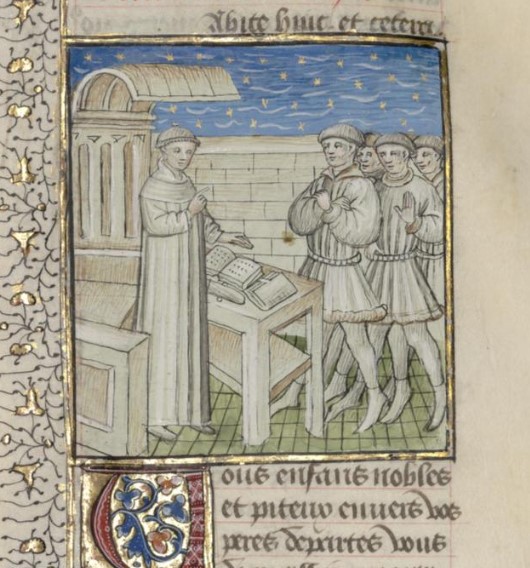 Abite hinc et ceteri.
ous enfans nobles
et piteux enuers vos
peres departes vous